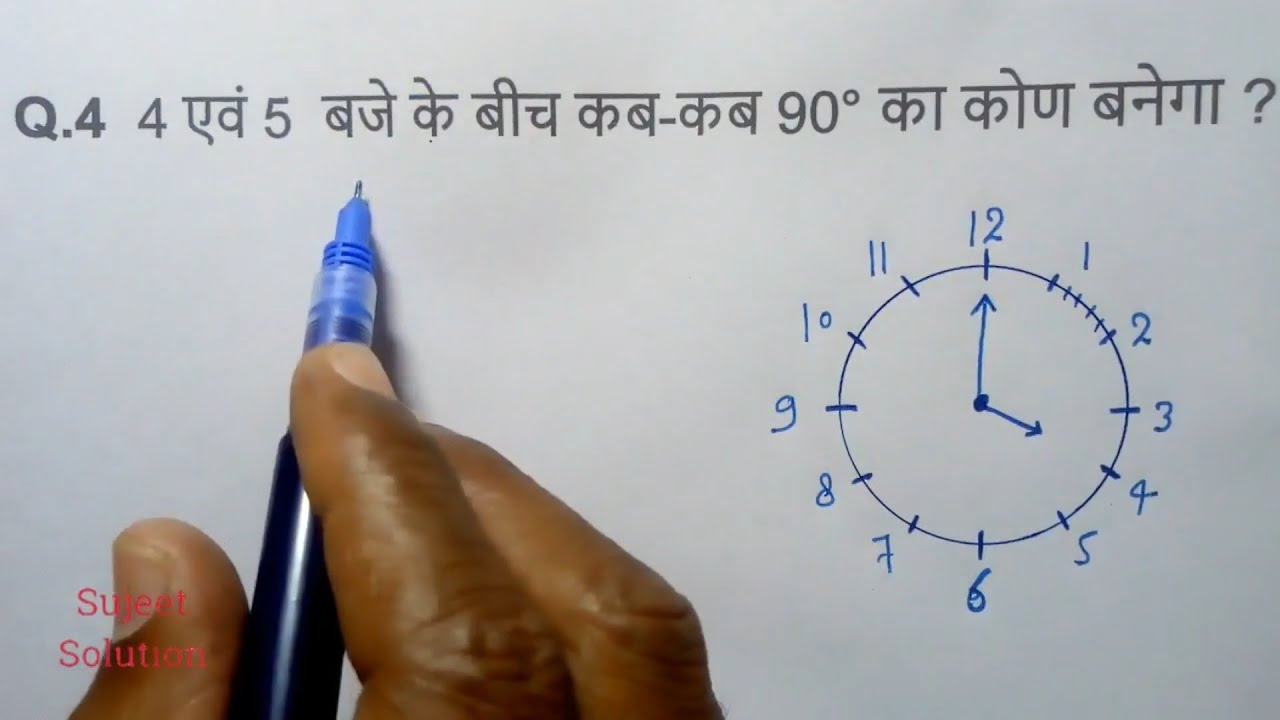 Q.4 4 एवं 5 बजे के बीच कब-कब 90° का कोण बनेगा ?
12
11 1
10 2
9 3
8 4
7 5
6
Sujeet
Solution